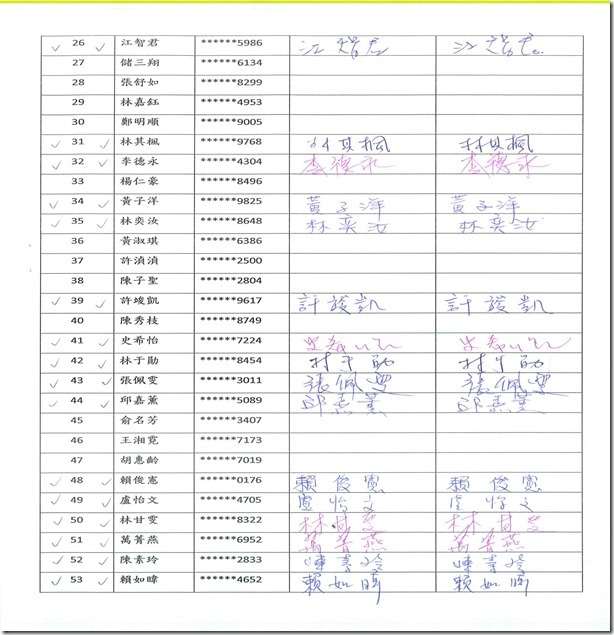 ✓ 26 ✓ 江智君 ******5986 江智君 江智君
27 儲三翔 ******6134
28 張舒如 ******8299
29 林嘉鈺 ******4953
30 鄭明順 ******9005
✓ 31 ✓ 林其楓 ******9768 林其楓 林其楓
✓ 32 ✓ 李德永 ******4304 李德永 李德永
33 楊仁豪 ******8496
✓ 34 ✓ 黃子洋 ******9825 黃子洋 黃子洋
✓ 35 ✓ 林奕汝 ******8648 林奕汝 林奕汝
36 黃淑琪 ******6386
37 許湞湞 ******2500
38 陳子聖 ******2804
✓ 39 ✓ 許竣凱 ******9617 許竣凱 許竣凱
40 陳秀枝 ******8749
✓ 41 ✓ 史希怡 ******7224 史希怡 史希怡
✓ 42 ✓ 林于勛 ******8454 林于勛 林于勛
✓ 43 ✓ 張佩雯 ******3011 張佩雯 張佩雯
✓ 44 ✓ 邱嘉薰 ******5089 邱嘉薰 邱嘉薰
45 俞名芳 ******3407
46 王湘霓 ******7173
47 胡惠齡 ******7019
✓ 48 ✓ 賴俊憲 ******0176 賴俊憲 賴俊憲
✓ 49 ✓ 盧怡文 ******4705 盧怡文 盧怡文
✓ 50 ✓ 林甘雯 ******8322 林甘雯 林甘雯
✓ 51 ✓ 萬菁燕 ******6952 萬菁燕 萬菁燕
✓ 52 ✓ 陳素玲 ******2833 陳素玲 陳素玲
✓ 53 ✓ 賴如暐 ******4652 賴如暐 賴如暐